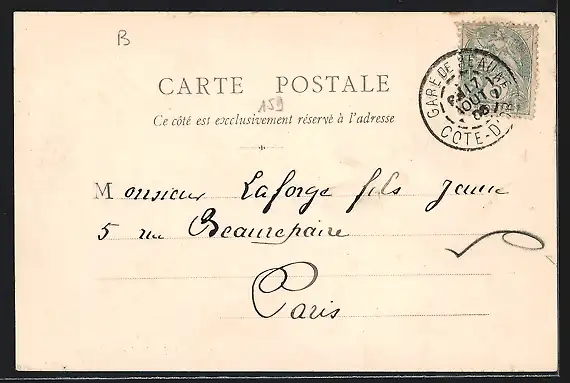 B
CARTE POSTALE
159
Ce côté est exclusivement réservé à l'adresse
GARE DE BEAUNE
AOUT
06
COTE-D'OR
Monsieur Laforge fils Jeune
5 rue Beaurepaire
Paris